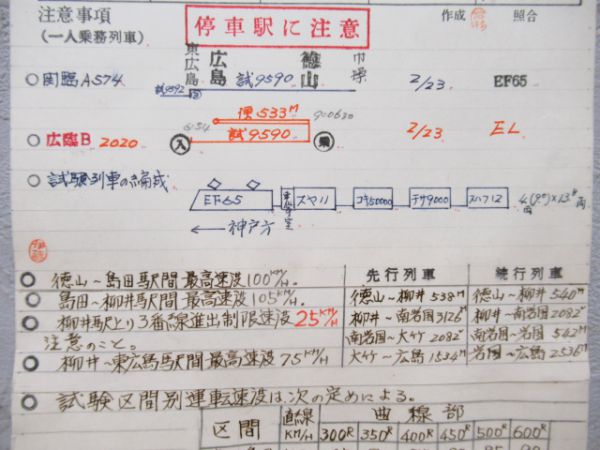 注意事項
(一人乗務列車)
停車駅に注意
作成 照合
東広島 広島 試9590 徳山 市操
関臨A574 2/23 EF65
試9592
便533M
6154 試9590 900630
広臨B 2020 入 乗 2/23 EL
試験列車の編成
EF65 車掌室 スヤ11 コキ50000 チサ9000 スハフ12
← 神戸方
先行列車 続行列車
徳山〜島田駅間最高速没100KM/H.
徳山〜柳井 538M 徳山〜柳井 540M
島田〜柳井駅間最高速没105KM/H.
柳井〜南岩国 3126M 柳井〜南岩国 2082レ
柳井駅より3番線進出制限速没25KM/H
注意のこと。
南岩国〜大竹 2082レ 南岩国〜岩国 542M
柳井〜東広島駅間最高速没75KM/H
大竹〜広島 1534M 岩国〜広島 2536M
試験区間別運転速没は、次の定めによる。
区間 直線 KM/H 曲線部
300R 350R 400R 450R 500R 600R